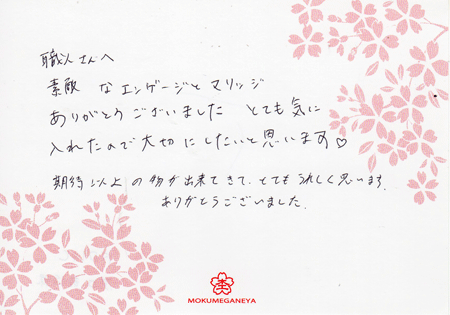 職人さんへ
素敵なエンゲージとマリッジ
ありがとうございました とても気に
入れたので大切にしたいと思います♡
期待以上の物が出来てきて、とてもうれしく思います。
ありがとうございました。
杢
MOKUMEGANEYA